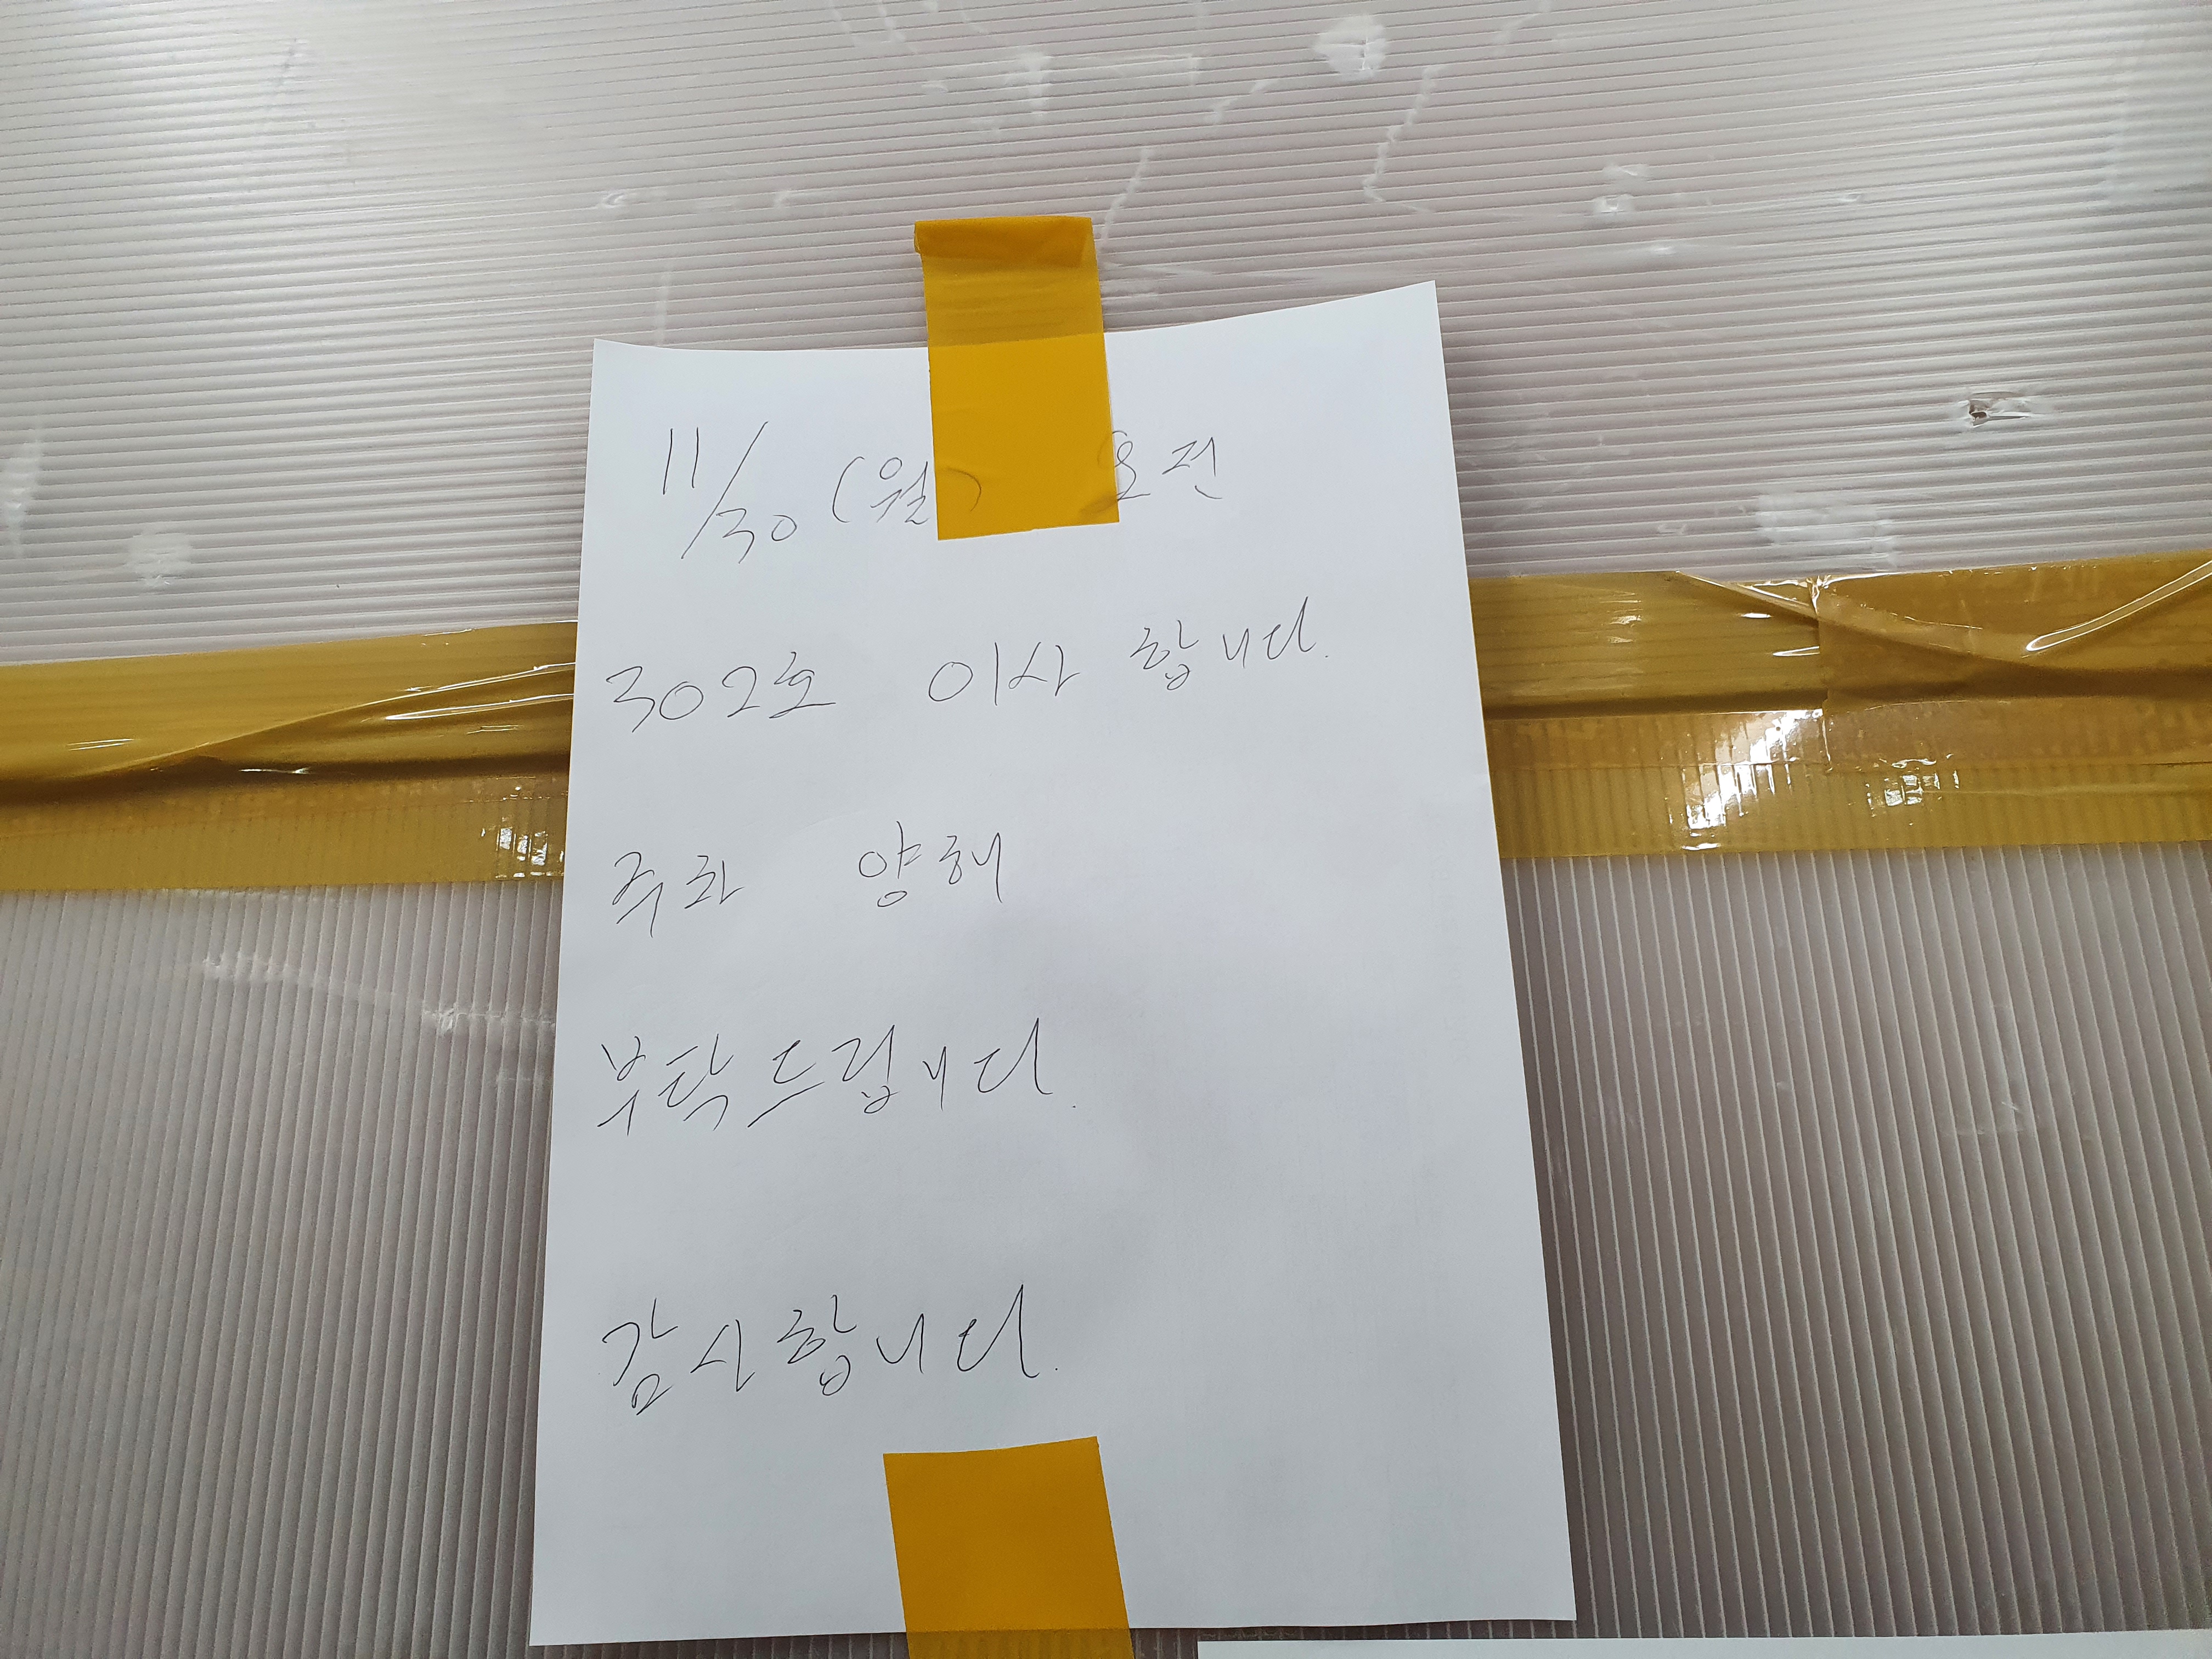 11/30 (월) 오전
302호 이사 합니다.
주차 양해
부탁드립니다.
감사합니다.